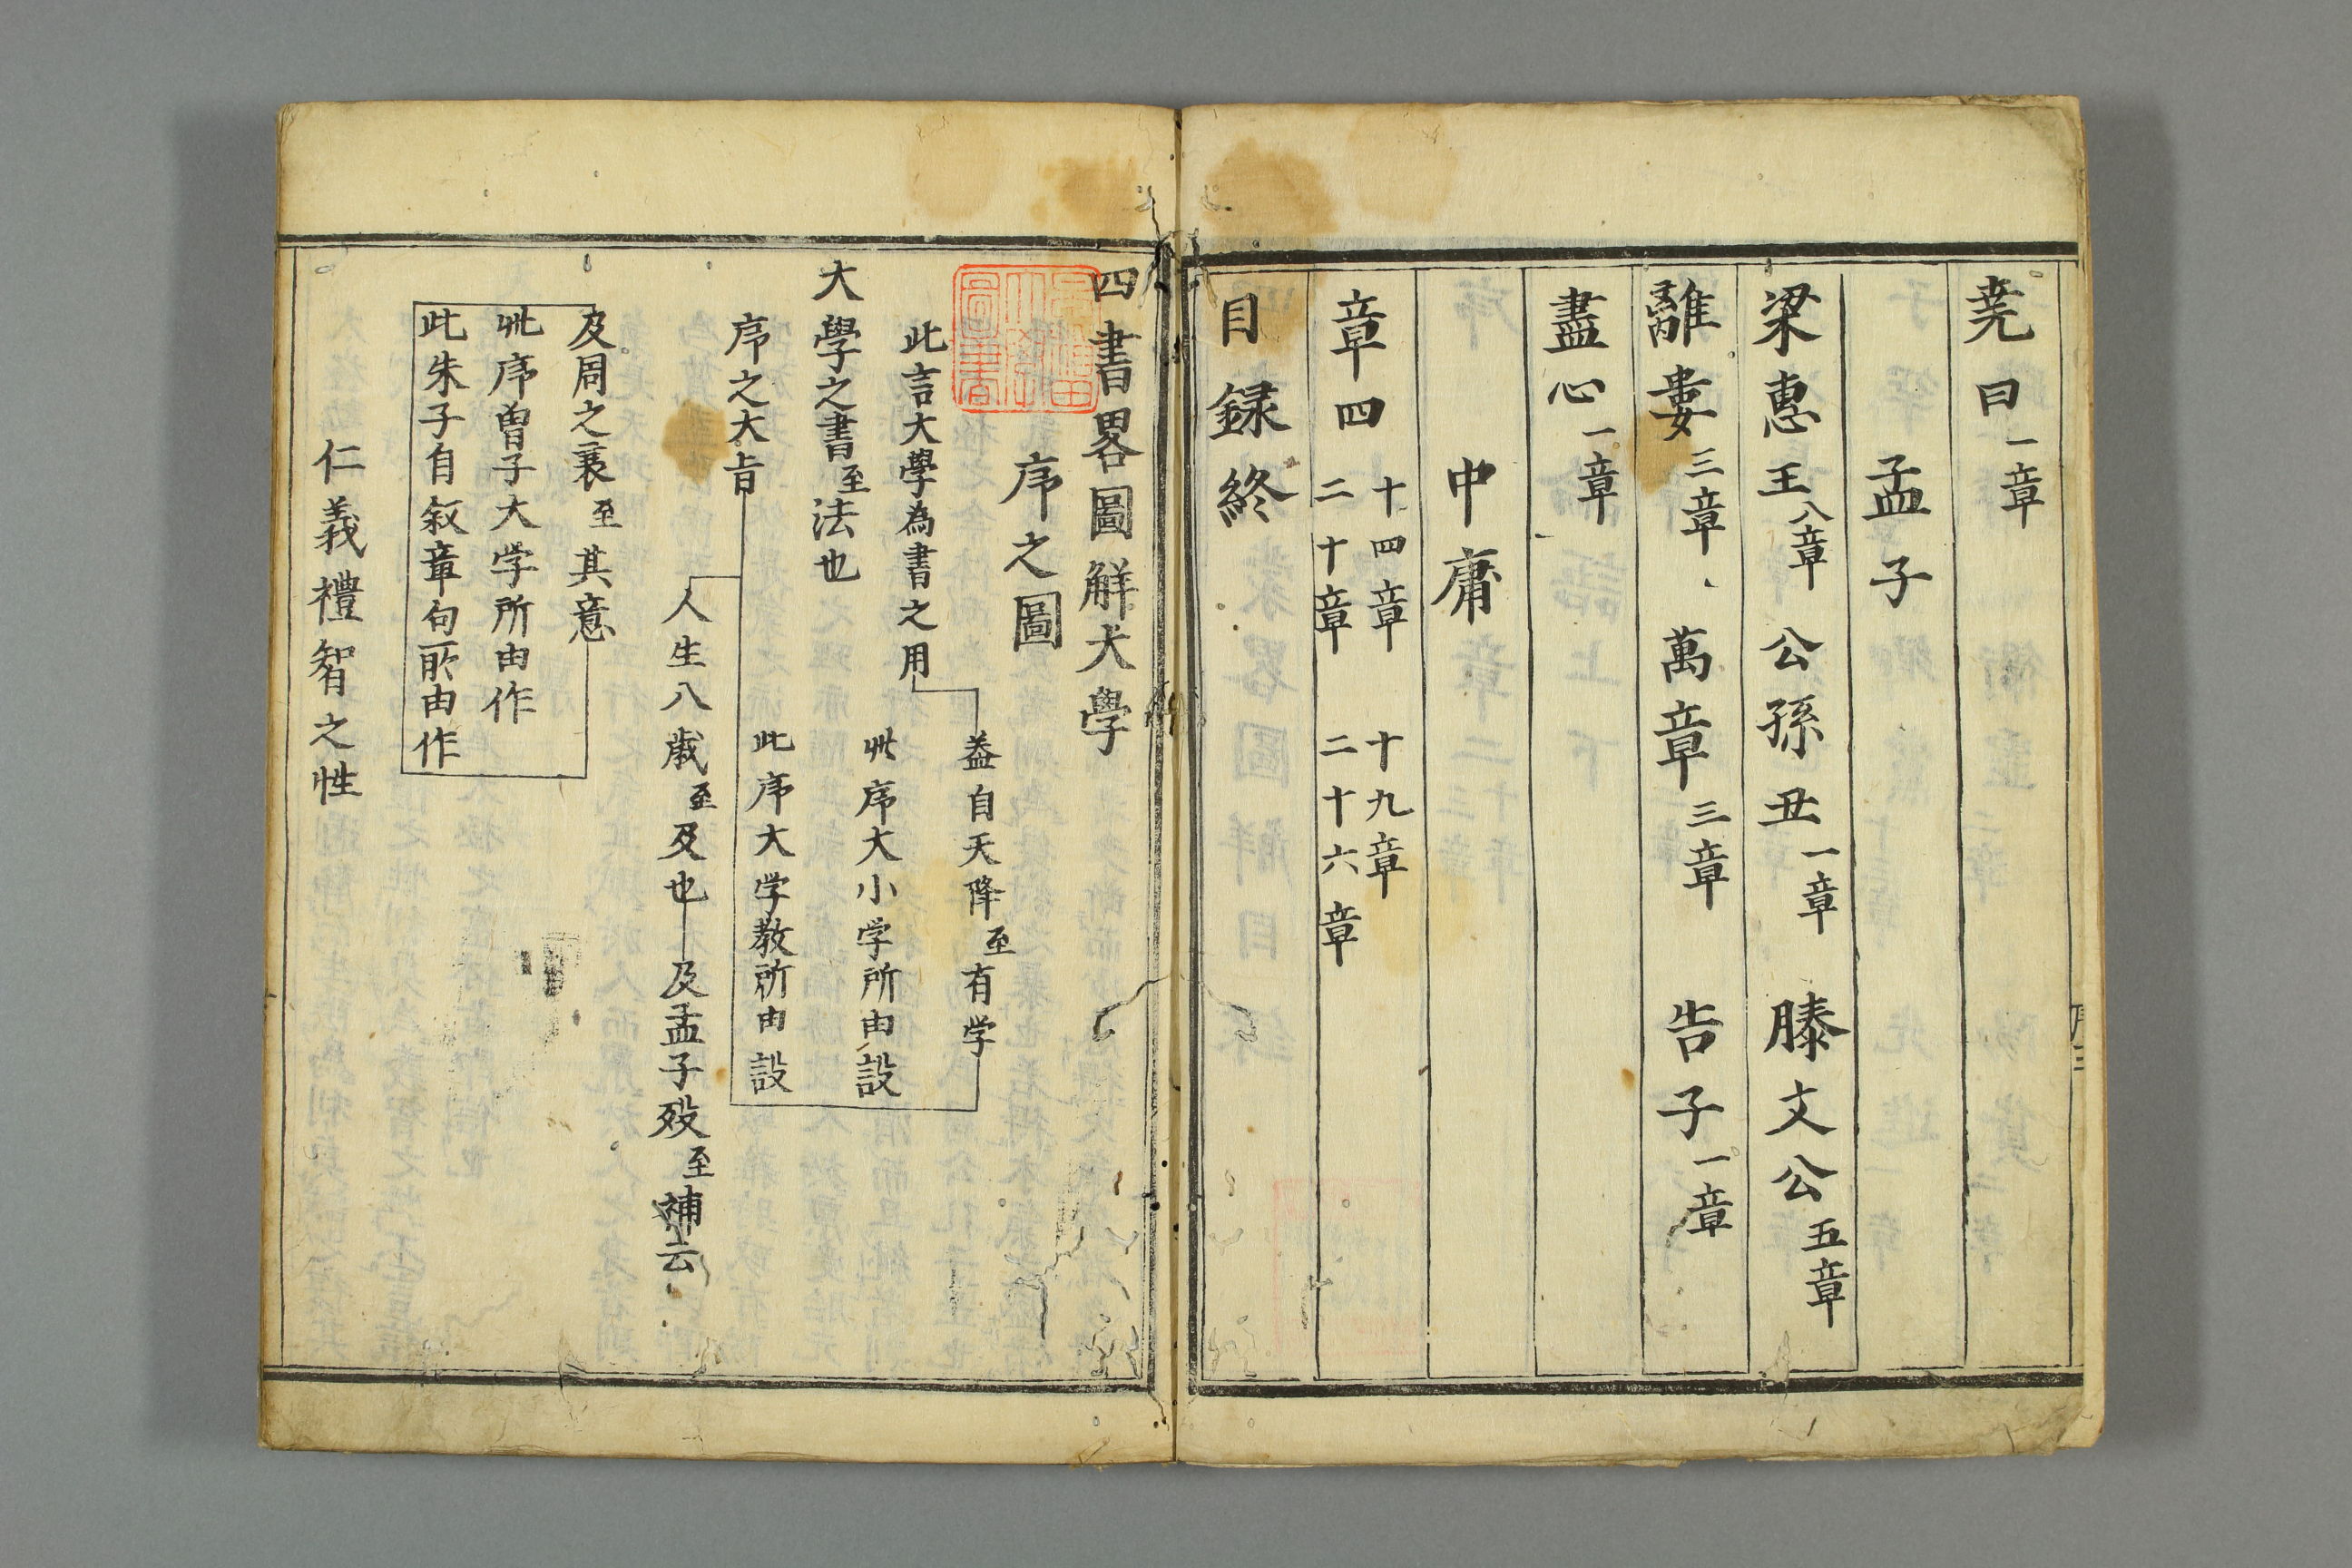 堯曰一章
孟子
梁惠王八章 公孫丑一章 滕文公五章
離婁三章 萬章三章 告子一章
盡心一章
中庸
章四 十四章 二十章 十九章 二十六章
目録終
四書畧圖解大學
序之圖
此言大學為書之用
葢自天降至有学
大學之書至法也
此序大小学所由設
序之大旨
此序大学教所由設
人生八歲至及也
及孟子歿至補云
及周之衰至其意
此序曾子大学所由作
此朱子自叙章句所由作
仁義禮智之性